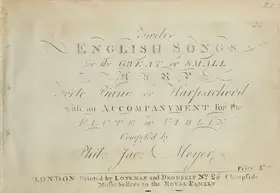 Twelve
ENGLISH SONGS
for the GREAT or SMALL
HARP
Forte Piano or Harpsichord
with an ACCOMPANYMENT for the
FLUTE or VIOLIN
Composed by
Phil: Jac: Meyer
Price
LONDON Printed by LONGMAN and BRODERIP No. 26 Cheapside
Music Sellers to the ROYAL FAMILY